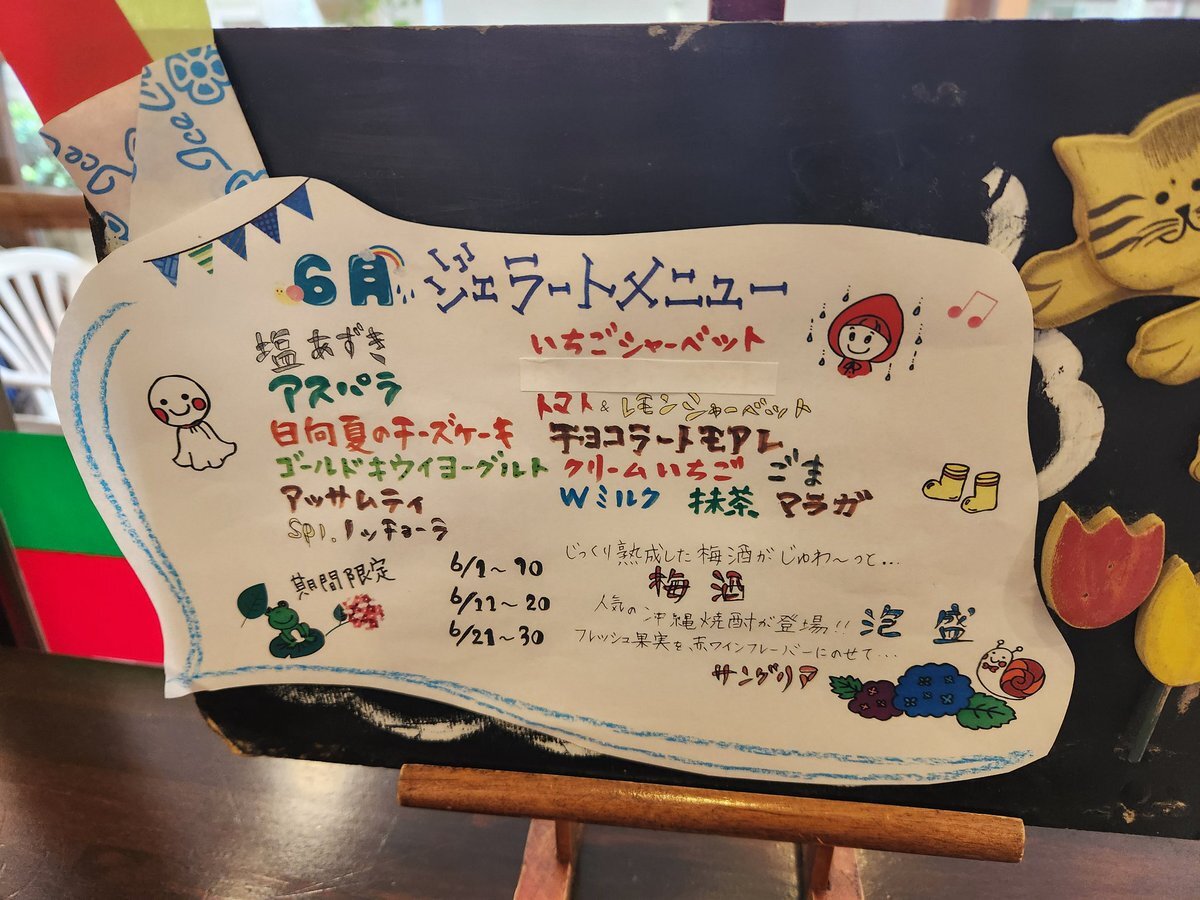 Ice
Ice
6月 ジェラートメニュー
塩あずき
アスパラ
日向夏のチーズケーキ
ゴールドキウイヨーグルト
アッサムティ
Spl.ノッチョーラ
いちごシャーベット
トマト&レモンシャーベット
チョコラートモアレ
クリームいちご ごま
Wミルク 抹茶 マラガ
期間限定
6/1〜10 じっくり熟成した梅酒がじゅわ〜っと...
梅酒
6/11〜20 人気の沖縄焼酎が登場!! 泡盛
6/21〜30 フレッシュ果実を、赤ワインフレーバーにのせて...
サングリア